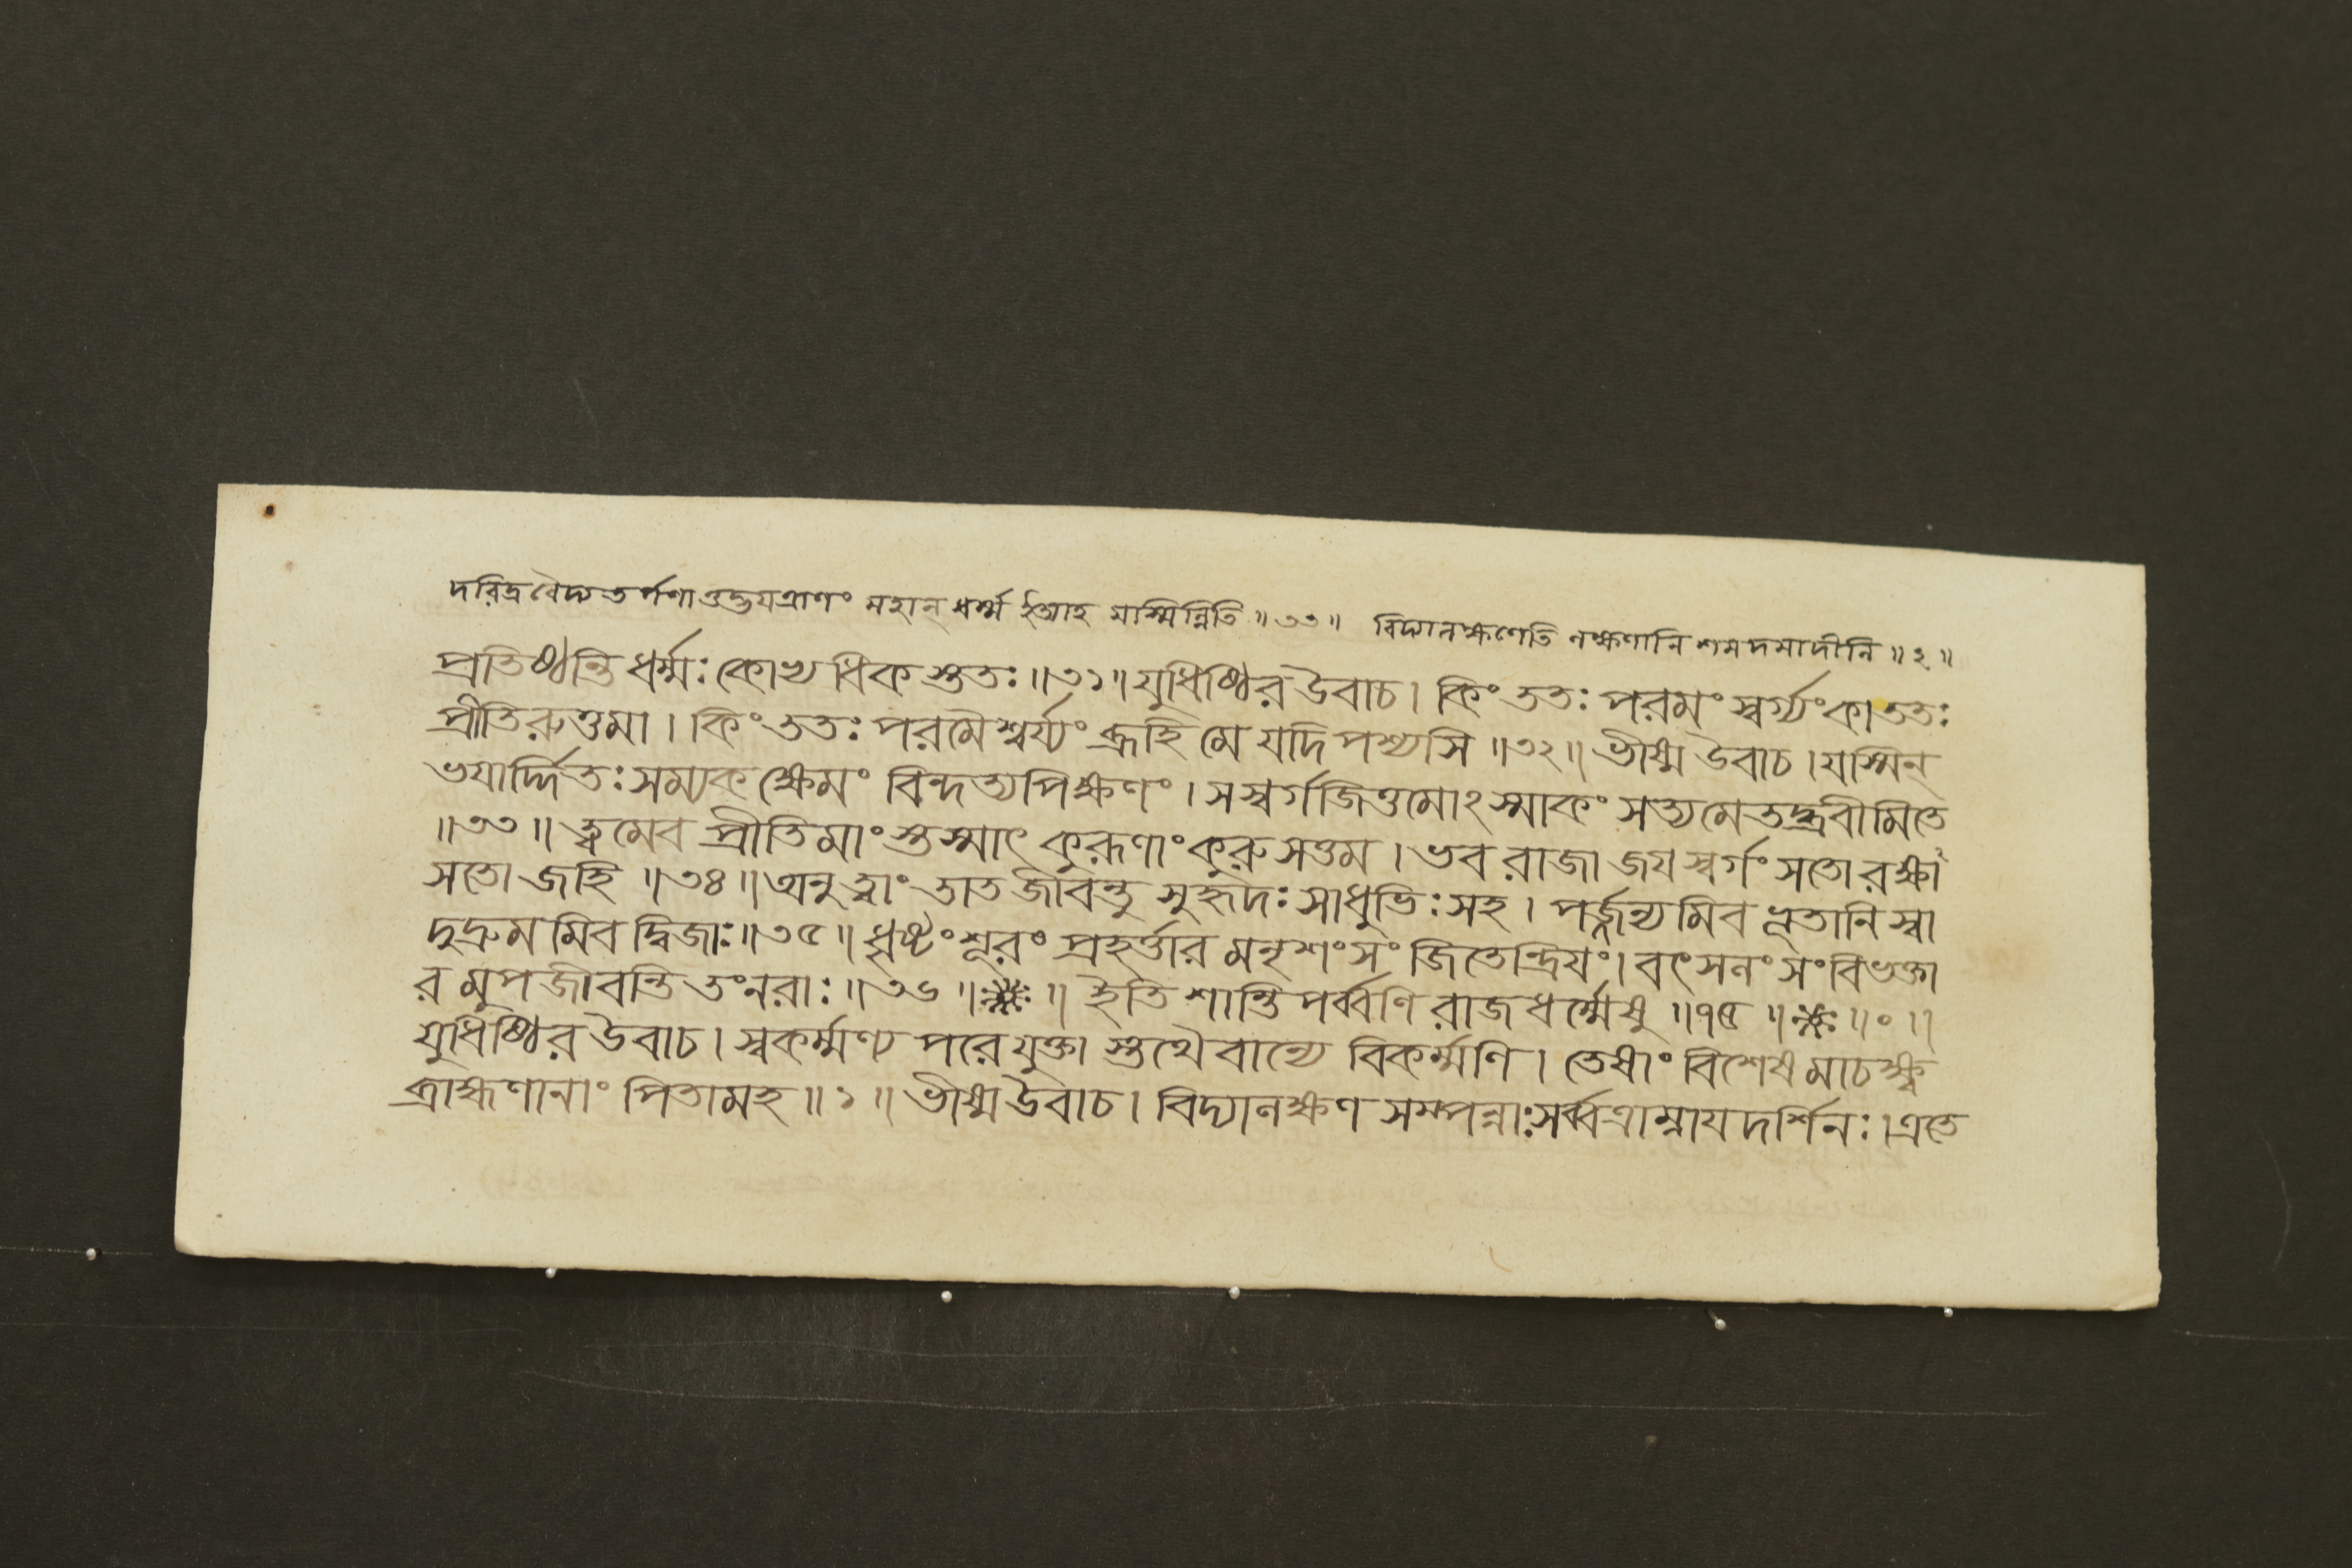 দরিদ্রবৈদ্য তর্পণা ওদ্ভযত্রাণং মহান্ ধর্ম্ম ইআহ যস্মিন্নিতি ॥ ৩৩ ॥ বিদ্যালক্ষণেতি লক্ষণানি শমদমাদীনি ॥ ২ ॥
প্রতিষ্ঠন্তি ধর্ম্মঃ কোখ্য ধিক স্ততঃ ॥ ৩১ ॥ যুধিষ্ঠির উবাচ । কিং ততঃ পরমং স্বর্গ্যং কা ততঃ
প্রীতিরুত্তমা । কিং ততঃ পরমৈশ্বর্য্যং ব্রূহি মে যদি পশ্যসি ॥ ৩২ ॥ ভীষ্ম উবাচ । যস্মিন্
ভযার্দ্দিতঃ সম্যক ক্ষেমং বিন্দত্যপিক্ষণং । স স্বর্গজিত্তমোঽস্মাকং সত্যমেতদ্ব্রবীমি তে
॥ ৩৩ ॥ ত্বমেব প্রীতিমাংস্তস্মাৎ কুরূণাং কুরুসত্তম । ভব রাজা জয স্বর্গং সতো রক্ষা
সতো জহি ॥ ৩৪ ॥ অনু ত্বাং তাত জীবন্তু সুহৃদঃ সাধুভিঃ সহ । পর্জ্জন্যমিব ভূতানি স্বা
দুদ্রুমমিব দ্বিজাঃ ॥ ৩৫ ॥ ধৃষ্টং শূরং প্রহর্ত্তারমনৃশংসং জিতেন্দ্রিযং । বৎসলং সংবিভক্তা
রমুপজীবন্তি তং নরাঃ ॥ ৩৬ ॥ ※ ॥ ইতি শান্তিপর্ব্বণি রাজধর্ম্মেষু ॥ ৭৫ ॥ ※ ॥ ০ ॥
যুধিষ্ঠির উবাচ । স্বকর্ম্মণ্য পরে যুক্তা স্তথৈবান্যে বিকর্ম্মণি । তেষাং বিশেষমাচক্ষ্ব
ব্রাহ্মণানাং পিতামহ ॥ ১ ॥ ভীষ্ম উবাচ । বিদ্যালক্ষণ সম্পন্নাঃ সর্ব্বত্রাম্নায দর্শিনঃ । এতে